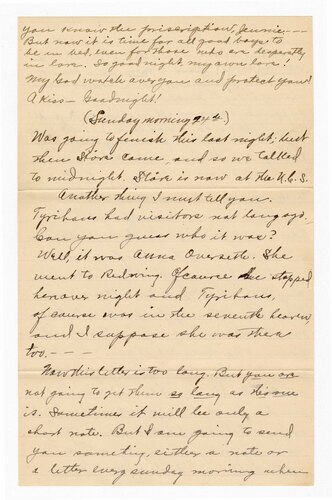 you know the priscription, Jennie. - - -
But now it is time for all good boys to
be in bed, even for those who are desperatly
in love. So good night, my own love!
My God watch over you and protect you!
A kiss - Goodnight!
(Sunday morning 24th.)
Was going to finish this last night; but
then Störe came, and so we talked
to midnight. Störe is now at the U.C.S.
Another thing I must tell you.
Tyrihaus had visitors not long ago.
Can you guess who it was?
Well, it was Anna Overseth. She
went to Redwing. Of course she stopped
here over night and Tyrihaus,
of course was in the seventh heaven,
and I suppose she was there
too. - - -
Now this letter is too long. But you are
not going to get them so long as this one
is. Sometimes it will be only a
short note. But I am going to send
you something, either a note or
a letter every sunday morning when